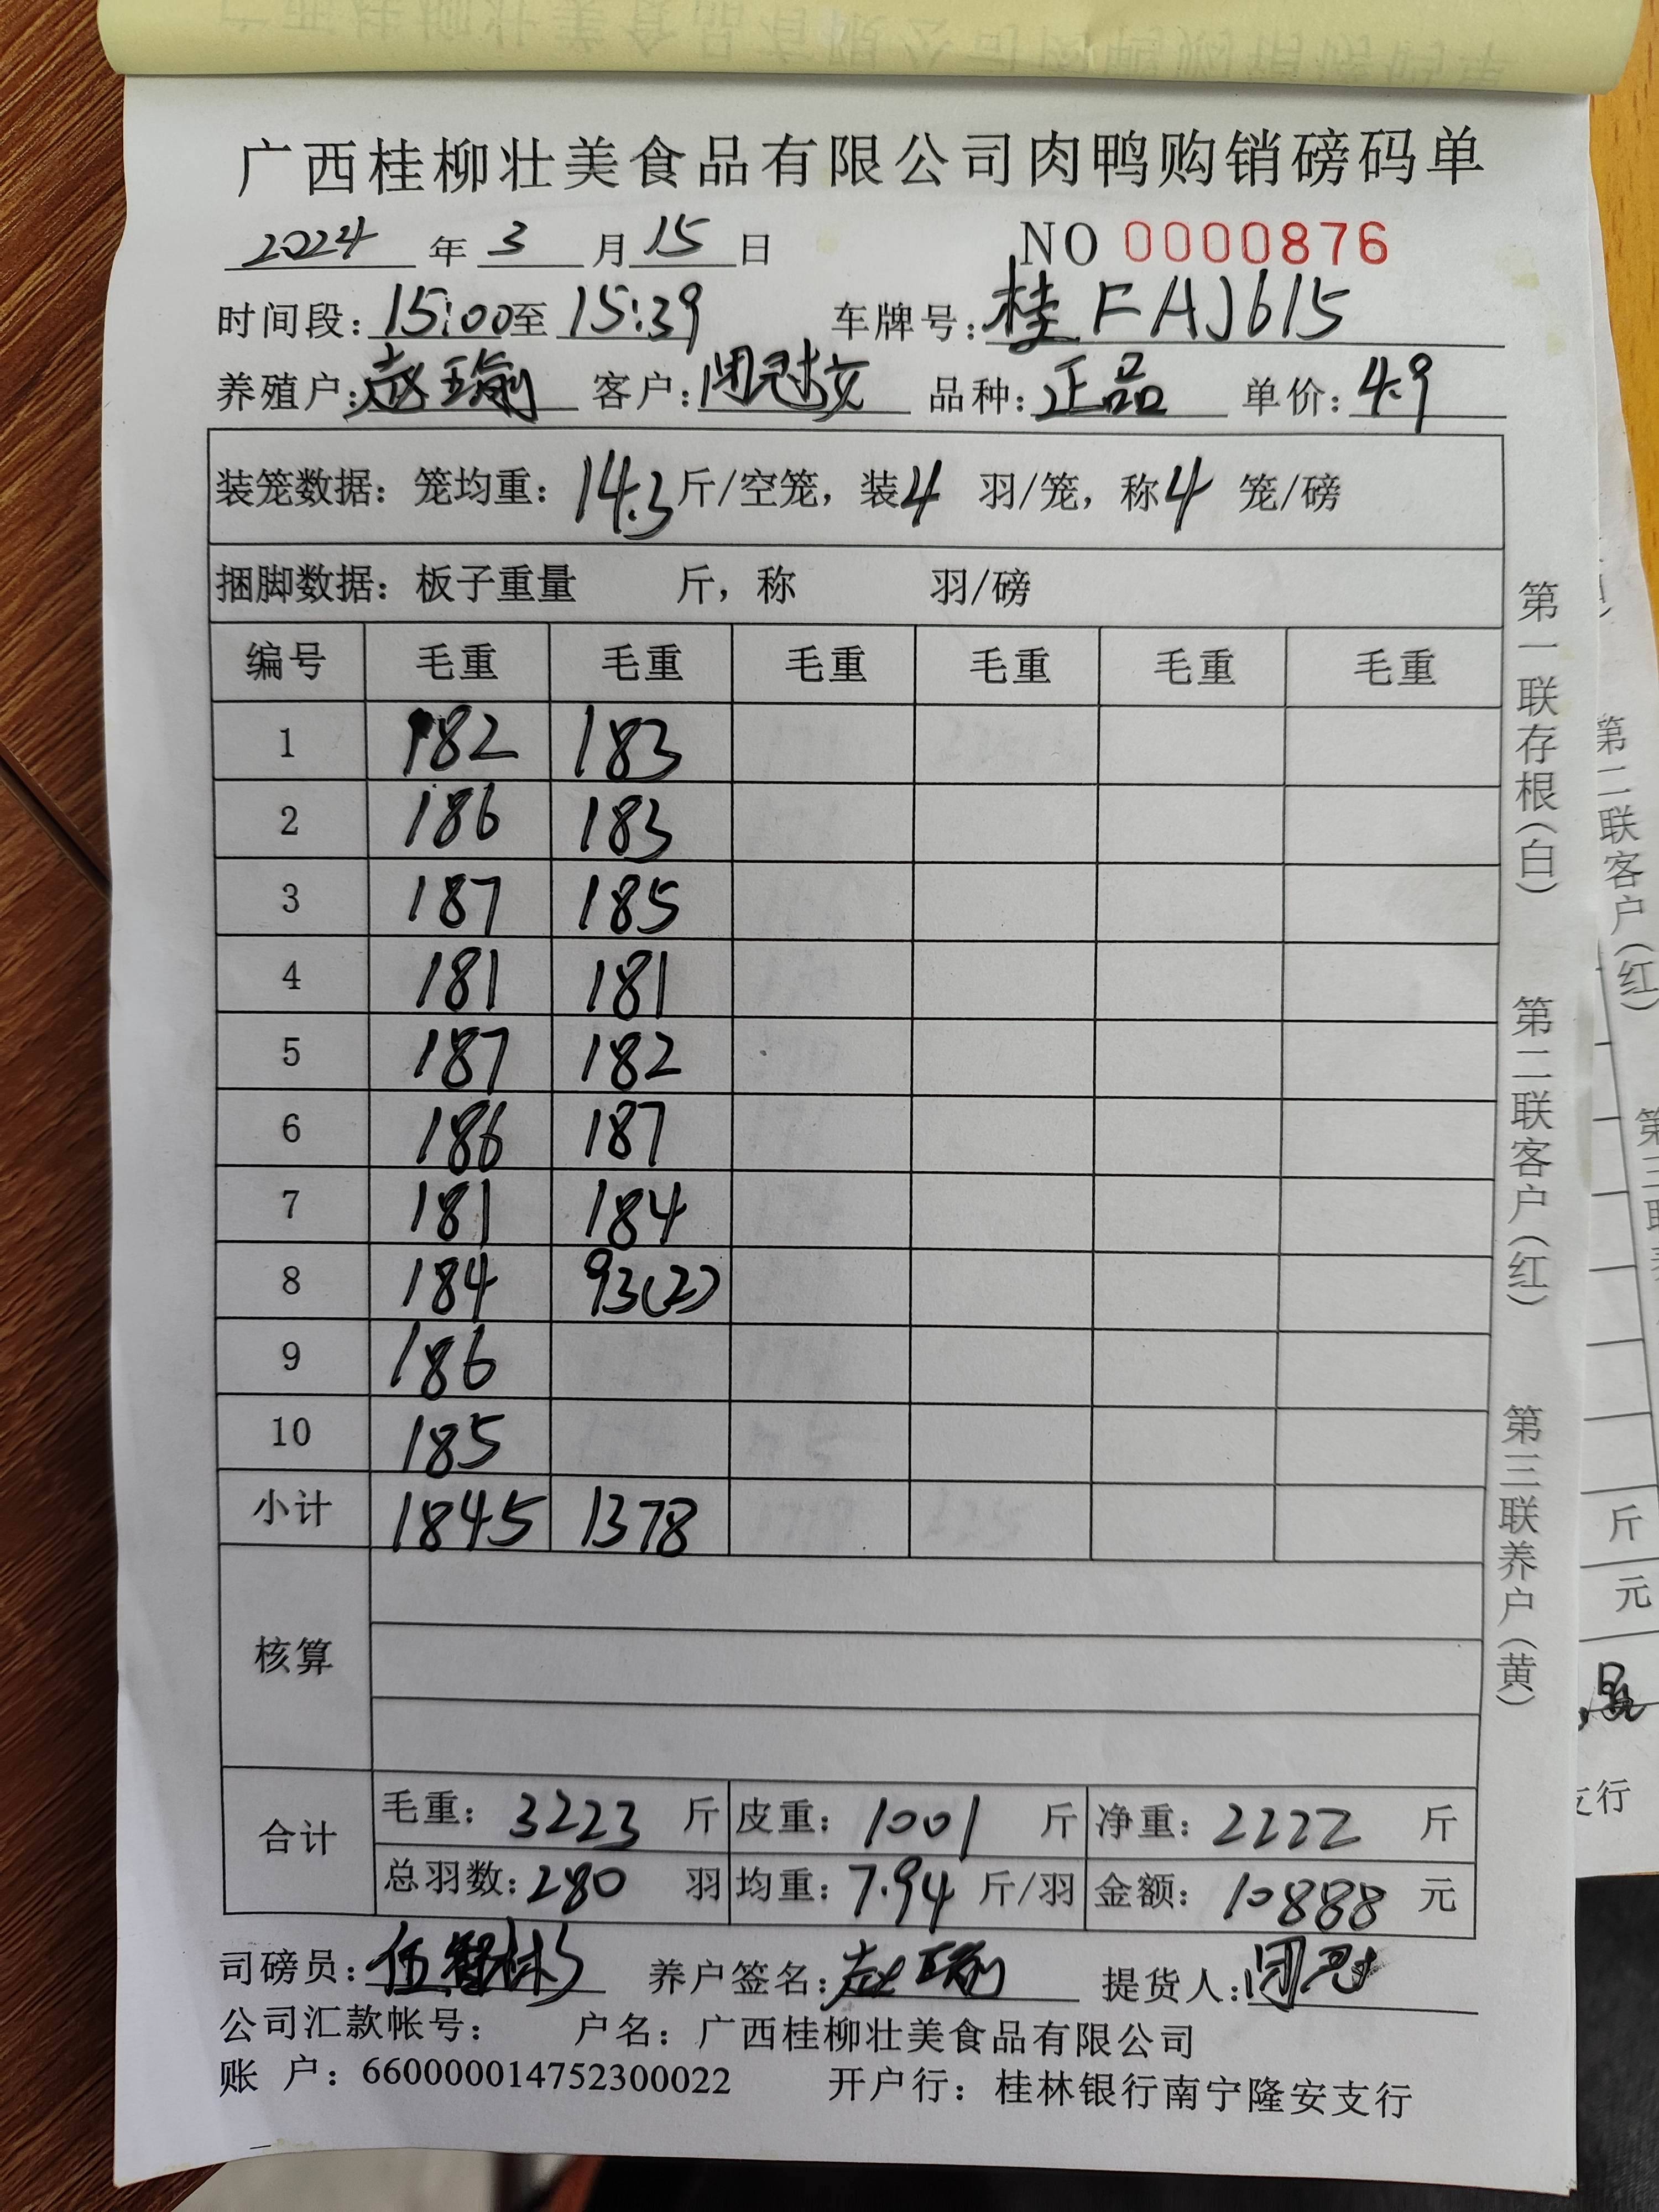 广西桂柳壮美食品有限公司肉鸭购销磅码单
2024 年 3 月 15 日 NO 0000876
时间段: 15:00 至 15:39 车牌号: 桂FAJ615
养殖户: 赵玉瑜 客户: 闭冠 品种: 正品 单价: 4.9
装笼数据: 笼均重: 14.3 斤/空笼, 装 4 羽/笼, 称 4 笼/磅
捆脚数据: 板子重量 斤, 称 羽/磅
编号 毛重 毛重 毛重 毛重 毛重 毛重
1 182 183
2 186 183
3 187 185
4 181 181
5 187 182
6 186 187
7 181 184
8 184 93(2)
9 186
10 185
小计 1845 1378
核算
合计
毛重: 3223 斤 皮重: 1001 斤 净重: 2222 斤
总羽数: 280 羽 均重: 7.94 斤/羽 金额: 10888 元
司磅员: 养户签名: 提货人: 闭冠
公司汇款帐号: 户名: 广西桂柳壮美食品有限公司
账 户: 660000014752300022 开户行: 桂林银行南宁隆安支行
第一联存根(白) 第二联客户(红) 第三联养户(黄)
第二联客户(红)
斤
元
支行